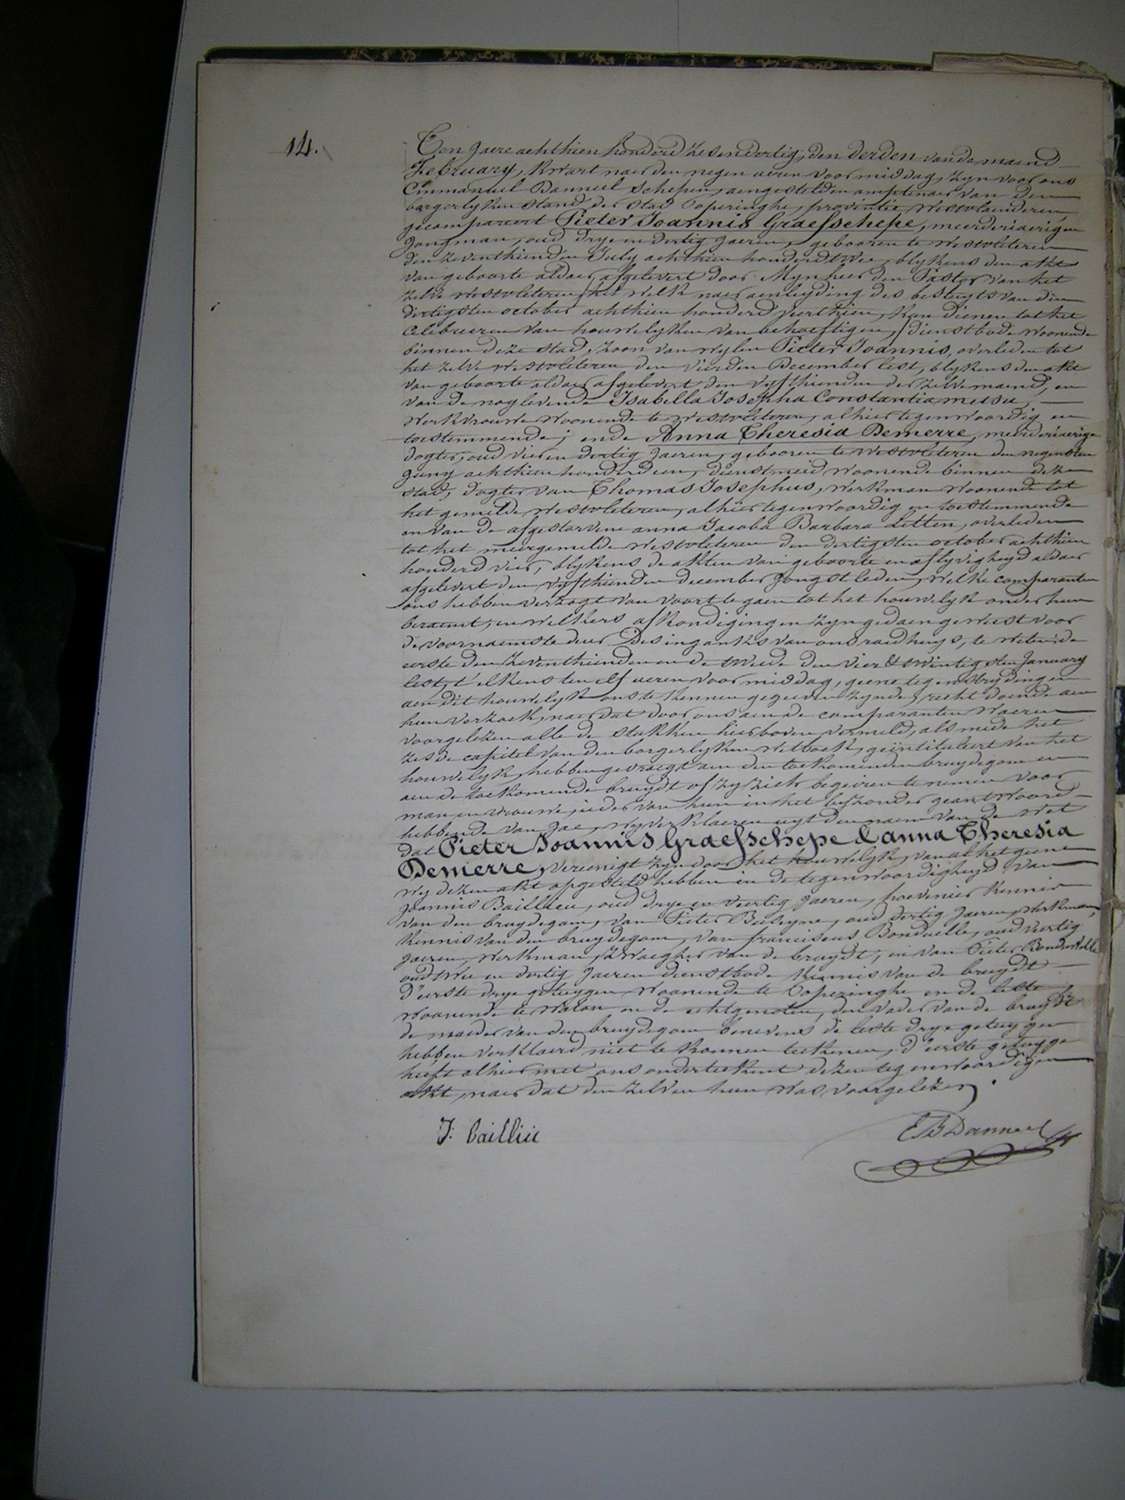 14.
Ten jaere achthien honderd zesendertig, den derden van de maend
February, kwart naer den negen ueren voormiddag, zyn voor ons
Emmanuel Danneel schepen, aengestelden amptenaer van den
borgerlyken stand, der stad Poperinghe, provintie Westvlaenderen,
gecompareert Pieter Joannis Graefschepe, meerderjaerigen
jongman, oud drye en dertig jaeren, gebooren te Westvleteren
den zeventhienden July achthien honderd twee, blykens den akt
van geboorte aldaer afgelevert door Mynheer den Pastor van het
zelve Westvleteren, het welk naer aenleyding des besluyts van den
dertigsten october achthien honderd veerthien, kan dienen tot het
celebreeren van houwelyken van behoeftigen, dienstbode woonende
binnen deze stad, zoon van wylen Pieter Joannis, overleden tot
het zelve Westvleteren den vierden December lest, blykens den akt
van geboorte aldaer afgelevert den vyfthienden der zelve maend, en
van de nog levende Isabella Josepha Constantia
werkvrouwe woonende te Westvleteren, alhier tegenwoordig en
toestemmende; ende Anna Theresia Demerre, meerderjaerige
dogter, oud vier en dertig jaeren, gebooren te Westvleteren den negensten
juny achthien honderd een, dienstmeid, woonende binnen deze
stad, dogter van Thomas Josephus, werkman woonende tot
het gemelde Westvleteren, alhier tegenwoordig en toestemmende
en van de afgestorvene anna Jacoba Barbara Letten, overleden
tot het meergemelde Westvleteren den dertigsten october achthien
honderd vier, blykens de akten van geboorte en aflyvigheyd aldaer
afgelevert den vyfthienden december jongstleden, welke comparanten
ons hebben verzogt van voort te gaen tot het houwelyk onder hun
beraemt, en welkers afkondigingen zyn gedaen geweest voor
de voornaemste deur des ingangks van ons raedhuys, te weten de
eerste den zeventhienden en de tweede den vier & twintigsten January
lest, t'elkens ten elf ueren voormiddag, geene tegenstrydingen
aen dit houwelyk ons te kennen gegeeven zynde, recht doende aen
hun verzoek, naer dat door ons aen de comparanten waeren
voorgelezen alle de stukken hierboven vermeld, als mede het
zesde capitel van den borgerlyken wetboek, geïntituleert van het
houwelyk, hebben gevraegt aen den toekomenden bruydegom en
aen de toekomende bruydt of zy zich begeiren te nemen voor
man en vrouwe, ieder van hun in het byzonder geantwoord
hebbende van Jae, wy verklaeren uyt den naem van de wet
dat Pieter Joannis Graefschepe & anna Theresia
Demerre, vereenigt zyn door het houwelyk, van al het geene
wy dezen akt opgesteld hebben in de tegenwoordigheyd van
Joannis Baillieu, oud drye en veertig jaeren, hovenier kennis
van den bruydegom, van Pieter oud dertig jaeren, werkman,
kennis van den bruydegom, van franciscus Bonduelle, oud veertig
jaeren, werkman, zwaegher van de bruydt, en van Pieter
oud twee en dertig jaeren dienstbode kennis van de bruydt
d'eerste drye getuygen woonende te Poperinghe en de leste
woonende te Watou en de echtgenoten, den vader van de bruydt
de moeder van den bruydegom benevens de leste drye getuygen
hebben verklaerd niet te konnen teekenen, d'eerste getuyge
heeft alhier met ons onderteekent dezen tegenwoordigen
akt, naer dat den zelven hun was voorgelezen.
J. baillieu
E B Danneel